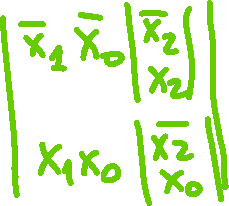 x̅₁ x̅₀ | x̅₂
x₂ |
x₁ x₀ | x̅₂
x₀ |